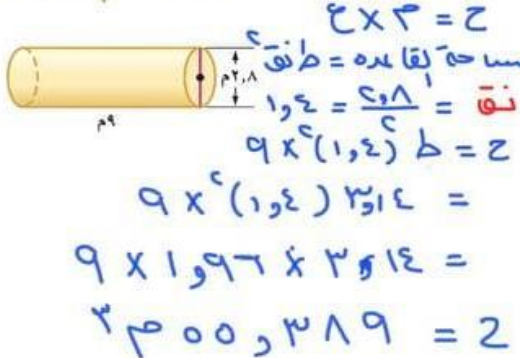 ح = م × ع
٢,٨م
مساحة القاعده = ط نق²
٩م
نق = ٢,٨/٢ = ١,٤
ح = ط (١,٤)² × ٩
= ٣,١٤ (١,٤)² × ٩
= ٣,١٤ × ١,٩٦ × ٩
ح = ٥٥,٣٨٩ م³